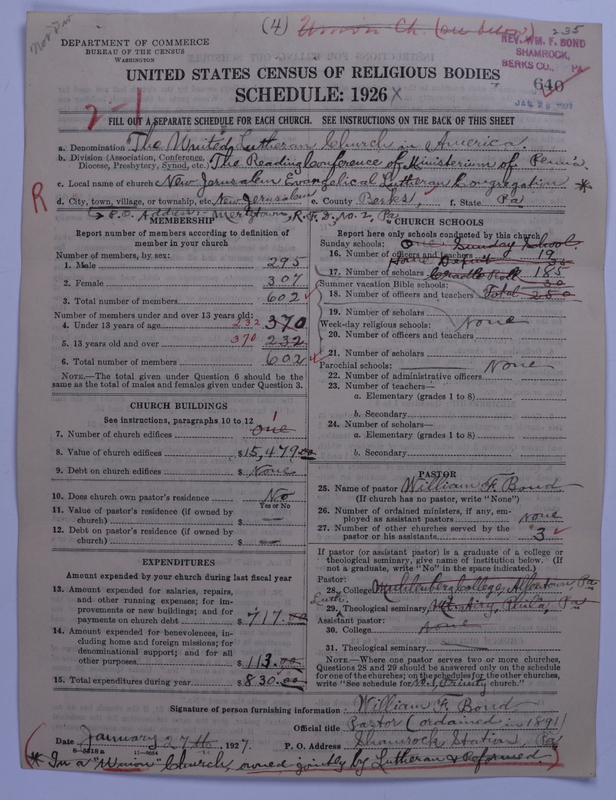 (4) Union Ch. (see below)
235
REV. WM. F. BOND
SHAMROCK,
BERKS CO., PA
640
DEPARTMENT OF COMMERCE
BUREAU OF THE CENSUS
WASHINGTON
UNITED STATES CENSUS OF RELIGIOUS BODIES
SCHEDULE: 1926 X
2-1
FILL OUT A SEPARATE SCHEDULE FOR EACH CHURCH. SEE INSTRUCTIONS ON THE BACK OF THIS SHEET
a. Denomination The United Lutheran Church in America.
b. Division (Association, Conference, Diocese, Presbytery, Synod, etc.) The Reading Conference of Ministerium of Penna.
c. Local name of church New Jerusalem Evangelical Lutheran Congregation *
R
d. City, town, village, or township, etc. New Jerusalem e. County Berks, f. State Pa
P.O. Address: Mertztown, R.F.D. No. 2, Pa
MEMBERSHIP
Report number of members according to definition of
member in your church
Number of members, by sex:
1. Male 295
2. Female 307
3. Total number of members 602
Number of members under and over 13 years old:
4. Under 13 years of age 232 370
5. 13 years old and over 370 232
6. Total number of members 602
NOTE.—The total given under Question 6 should be the
same as the total of males and females given under Question 3.
CHURCH BUILDINGS
See instructions, paragraphs 10 to 12
7. Number of church edifices one 1
8. Value of church edifices $15,479.00
9. Debt on church edifices $ None
10. Does church own pastor's residence No
Yes or No
11. Value of pastor's residence (if owned by
church) $ —
12. Debt on pastor's residence (if owned by
church) $ —
EXPENDITURES
Amount expended by your church during last fiscal year
13. Amount expended for salaries, repairs,
and other running expenses; for im-
provements or new buildings; and for
payments on church debt $717.00
14. Amount expended for benevolences, in-
cluding home and foreign missions; for
denominational support; and for all
other purposes $113.00
15. Total expenditures during year $830.00
CHURCH SCHOOLS
Report here only schools conducted by this church
Sunday schools: One Sunday School.
16. Number of officers and teachers 19
Home Depint 35
17. Number of scholars 185
Cradle Roll 30
Summer vacation Bible schools:
18. Number of officers and teachers Total 250
19. Number of scholars
Week-day religious schools: None
20. Number of officers and teachers
21. Number of scholars
Parochial schools: None
22. Number of administrative officers
23. Number of teachers—
a. Elementary (grades 1 to 8)
b. Secondary
24. Number of scholars—
a. Elementary (grades 1 to 8)
b. Secondary
PASTOR
25. Name of pastor William F. Bond
(If church has no pastor, write "None")
26. Number of ordained ministers, if any, em-
ployed as assistant pastors None
27. Number of other churches served by the
pastor or his assistants 3
If pastor (or assistant pastor) is a graduate of a college or
theological seminary, give name of institution below. (If
not a graduate, write "No" in the space indicated.)
Pastor:
28. College Muhlenberg College, Allentown, Pa
29. Luth. Theological seminary, Mt. Airy, Phila, Pa
Assistant pastor:
30. College None
31. Theological seminary
NOTE.—Where one pastor serves two or more churches,
Questions 28 and 29 should be answered only on the schedule
for one of the churches; on the schedules for the other churches,
write "See schedule for No. 1, Trinity church."
Signature of person furnishing information William F. Bond
Official title Pastor (ordained in 1891)
Date January 27th, 1927. P. O. Address Shamrock Station, Pa
(* In a "Union" Church, owned jointly by Lutheran & Reformed.)